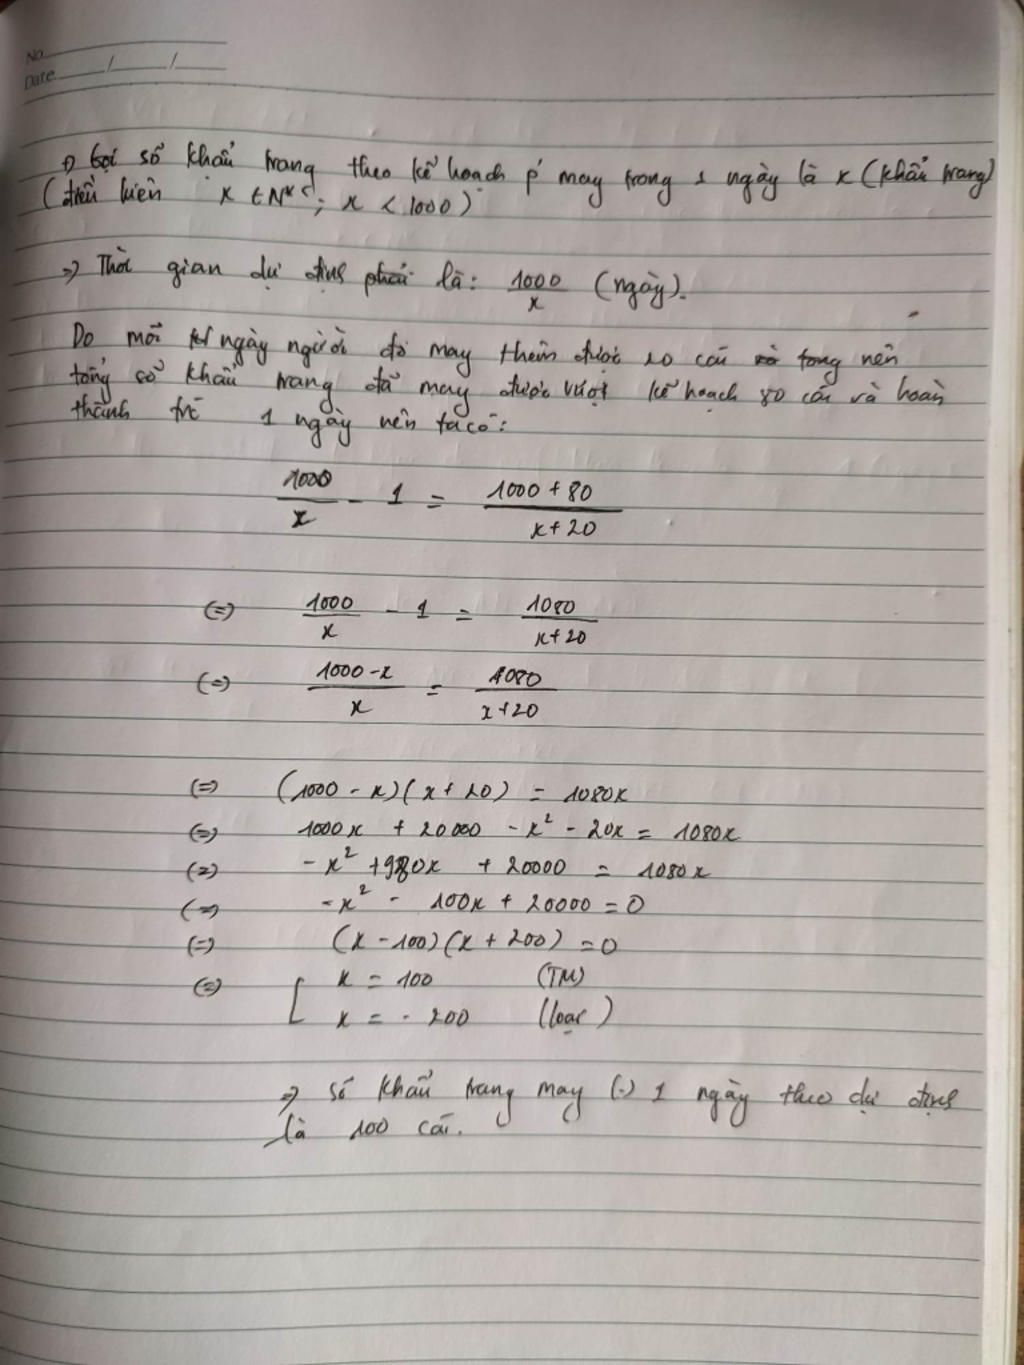 No
Date / /
1) Gọi số khẩu trang theo kế hoạch p' may trong 1 ngày là x (khẩu trang)
(điều kiện x ∈ N*; x < 1000)
=> Thời gian dự định là: 1000/x (ngày).
Do mỗi ngày người đó may thêm được 20 cái nên
tổng số khẩu trang đã may được vượt kế hoạch 80 cái và hoàn
thành 1 ngày nên ta có:
1000/x - 1 = (1000 + 80)/(x + 20)
(=) 1000/x - 1 = 1080/(x + 20)
(=) (1000 - x)/x = 1080/(x + 20)
(=) (1000 - x)(x + 20) = 1080x
(=) 1000x + 20000 - x² - 20x = 1080x
(=) - x² + 980x + 20000 = 1080x
(=) - x² - 100x + 20000 = 0
(=) (x - 100)(x + 200) = 0
(=) [ x = 100 (TM)
x = - 200 (loại)
=> Số khẩu trang may (.) 1 ngày theo dự định
là 100 cái.